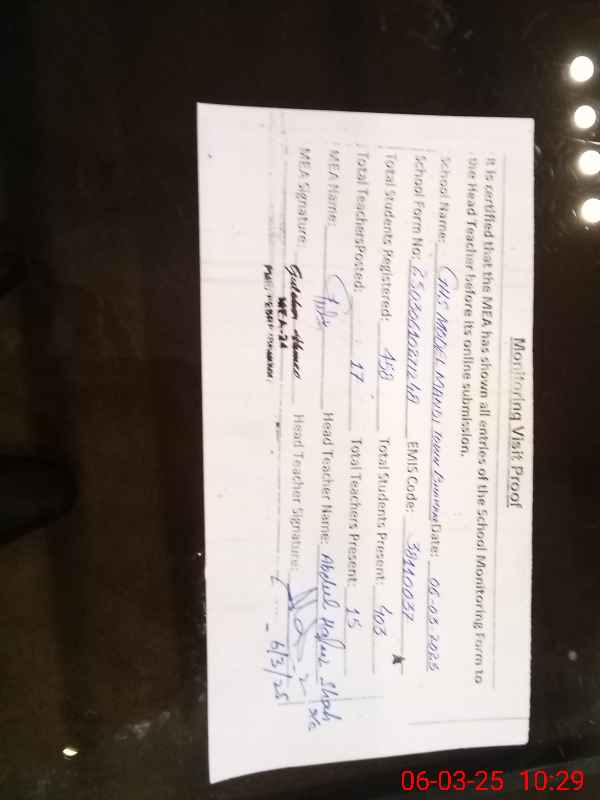 Monitoring Visit Proof
It is certified that the MEA has shown all entries of the School Monitoring Form to
the Head Teacher before its online submission.
School Name: GHS MODEL MANDI TOWN Date: 06-03-2025
School Form No: EMIS Code: 38110037
Total Students Registered: 458 Total Students Present: 403
Total Teachers Posted: 17 Total Teachers Present: 15
MEA Name: Head Teacher Name: Abdul Hafeez Shah
MEA Signature: Head Teacher Signature:
MEA-24
6/3/25
06-03-25 10:29